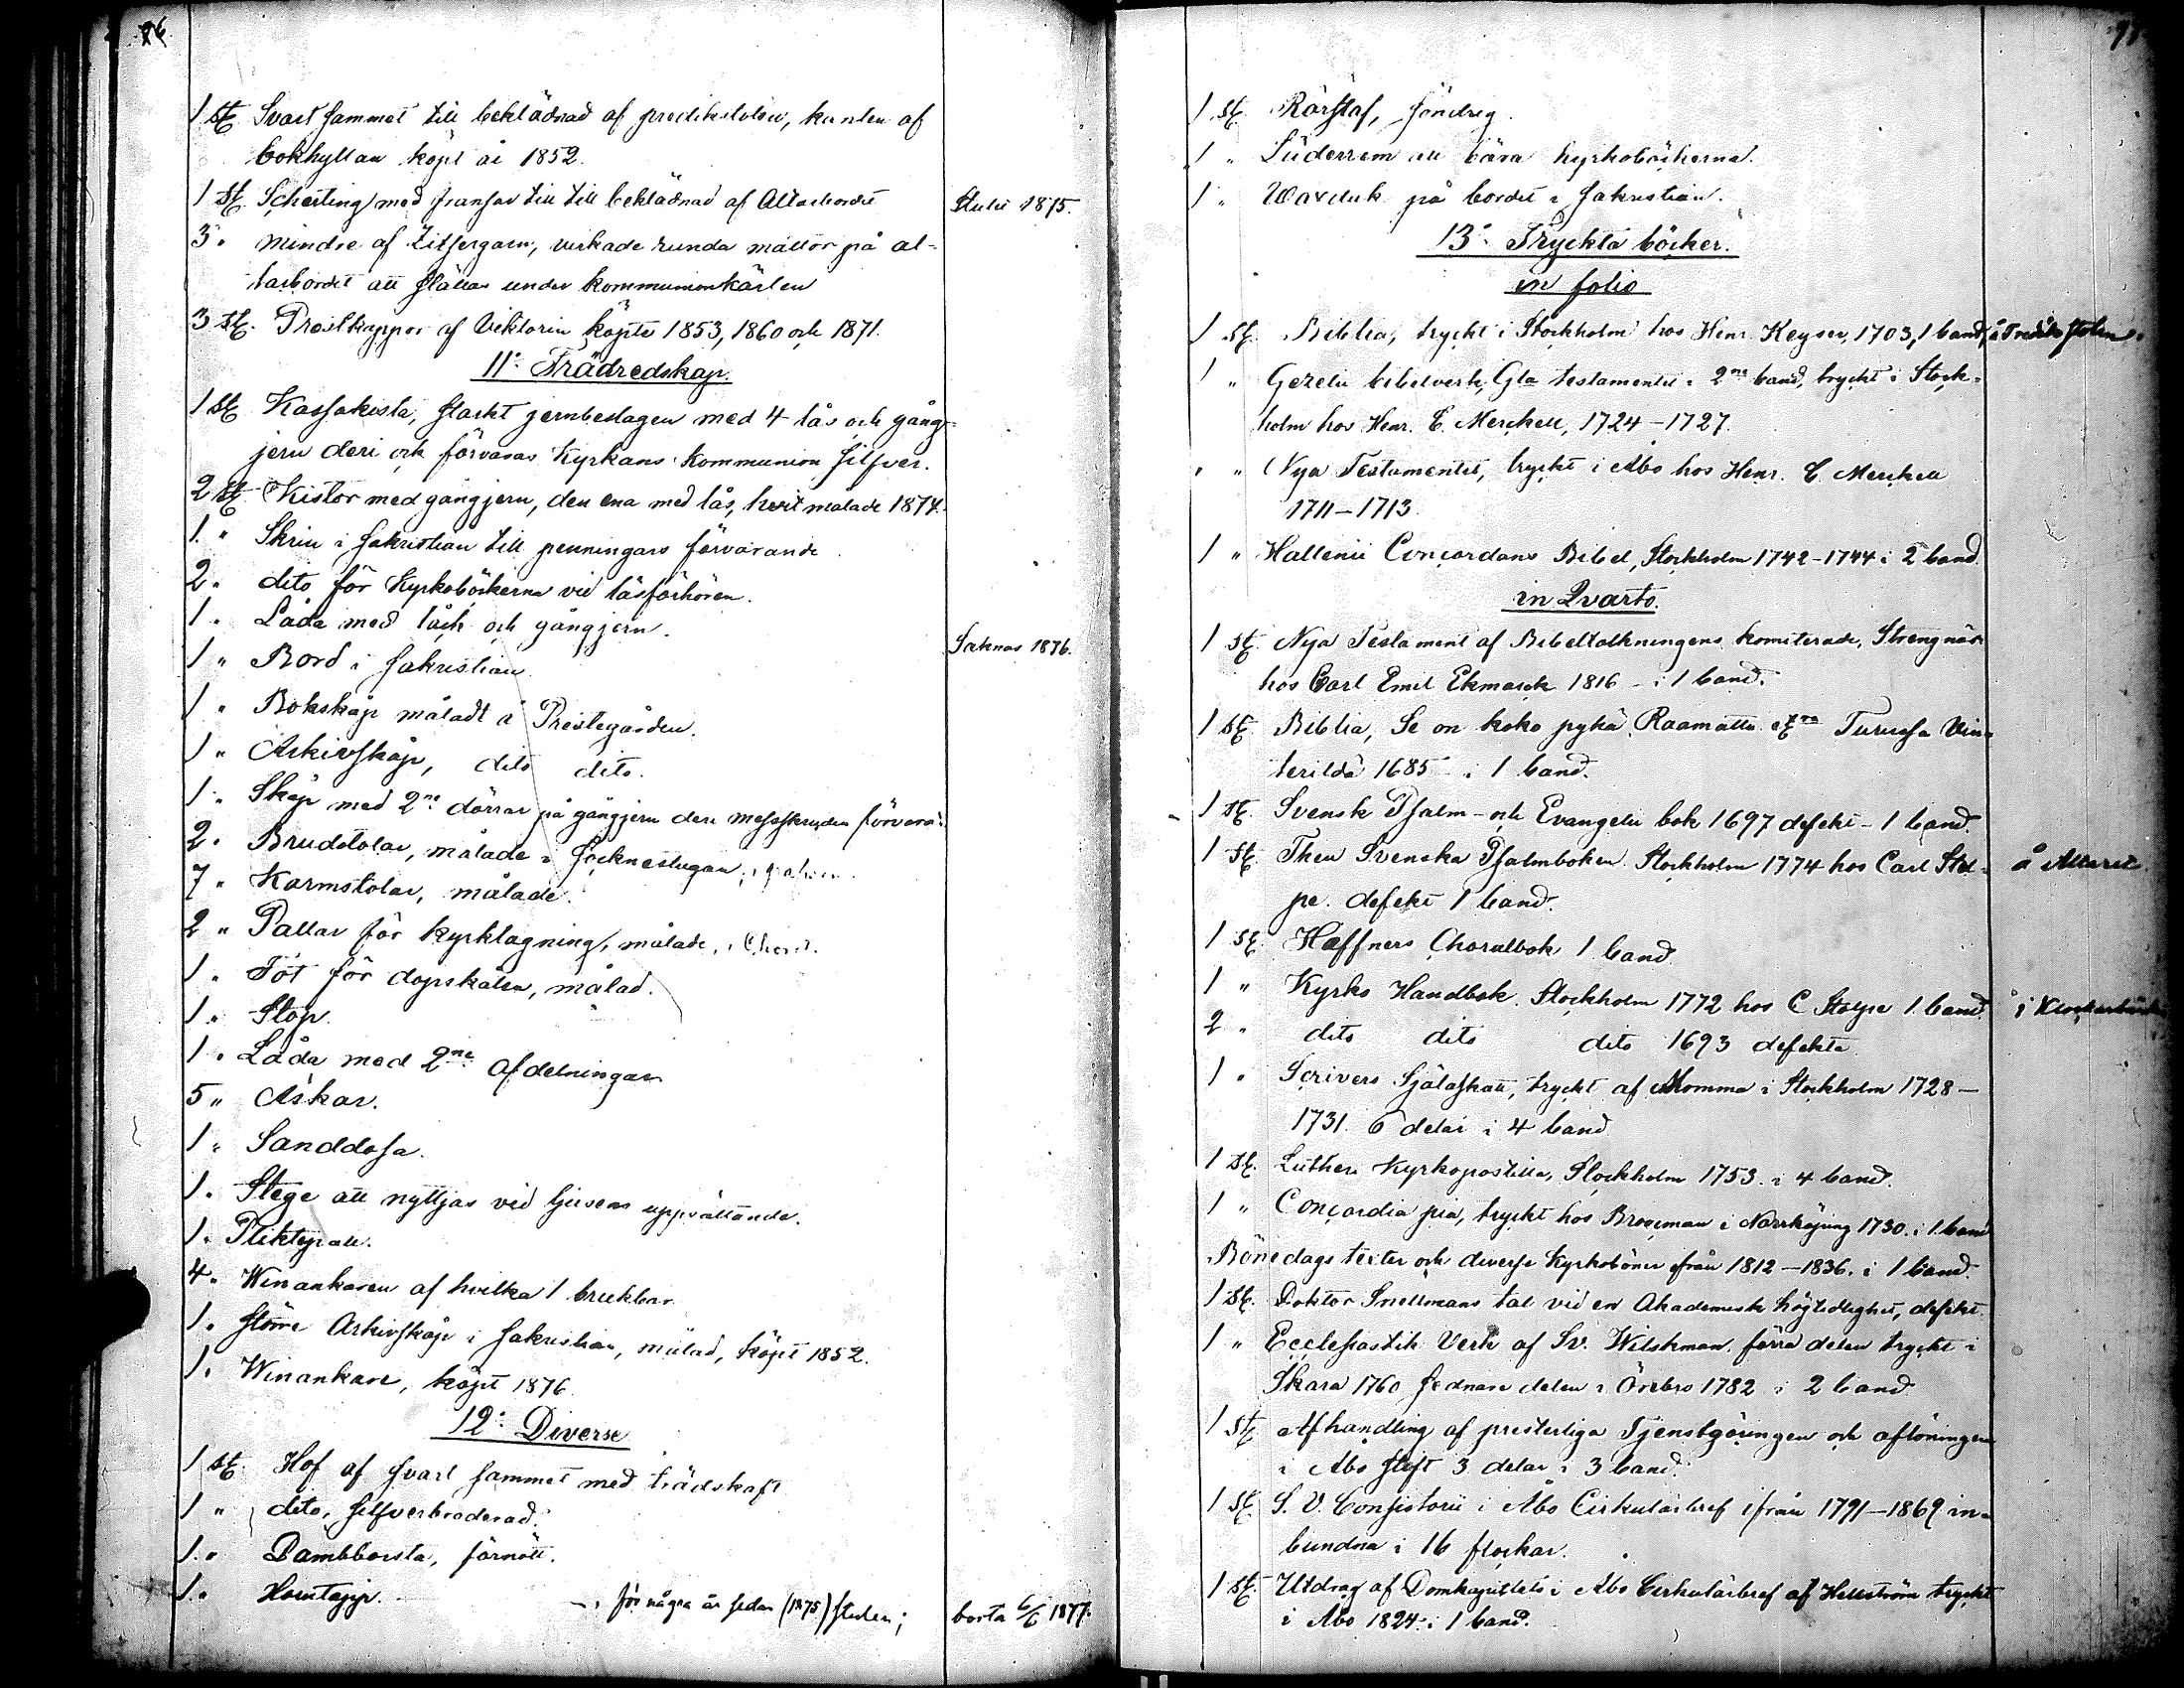 76.
1 st Svart sammet till beklädnad af predikstolen, kanten af
bokhyllan köpt år 1852.
1 st. Scherting med fransar till till beklädnad af Altarbordet Stulit 1875.
3 " mindre af Zitsergarn, virkade runda mattor på al-
tarbordet att ställas under kommunionkärlen
3 st. Prestkappor af Viktorin köpte 1853, 1860 och 1871.
11: Trädredskap.
1 st Kassakista, starkt jernbeslagen med 4 lås och gång-
jern deri och förvaras Kyrkans Kommunion silfver.
2 st Kistor med gångjern, den ena med lås, hvit målade 1874.
1. " Skrin i sakristian till penningars förvarande
2. dito för Kyrkoböckerna vid läsförhören.
1. Låda med lås och gångjern. Saknas 1876.
1 " Bord i sakristian
1 " Bokskåp måladt å Prestegården.
1 " Arkivskåp, dito dito.
1 " Skåp med 2ne dörrar på gångjern deri messskruden förvaras
2. Brudstolar, målade i socknestugan
7 " Karmstolar, målade.
2 " Pallar för kyrktagning, målade, i Choret.
1 " Fot för dopskålen, målad.
1 " Stop.
1 " Låda med 2ne afdelningar
5 " Askar.
1 " Sanddosa.
1. Stege att nyttjas vid ljusens upprättande.
1. Pliktpall.
4. Winankaren af hvilka 1 brukbar
1. större Arkivskåp i sakristian, målad, köpt 1852.
1. Winankare, köpt 1876
12: Diverse
1 st. Hof af svart sammet med trädskaft
1 " dito, silfverbroderad.
1. " Dambborsta, förnött.
1. " för några år sedan (1875) stulen; borta 6/6 1877.
1 st. Rörstaf, söndrig.
1 " Läderrem att bära kyrkoböckerna.
1 " Waxduk på bordet i sakristian.
13: Tryckta böcker.
in folio
1 st. Biblia, tryckt i Stockholm hos Henr. Keyser, 1703, 1 band, å Predikstolen.
1 " Gezelii bibelverk, Gla testamentet i 2ne band, tryckt i Stock-
holm hos Henr. C. Merckell, 1724-1727.
" " Nya Testamentet, tryckt i Åbo hos Henr. C. Merckell
1711-1713.
1 " Hallenii Concordans Bibel, Stockholm 1742-1744 i 2 band.
in Qvarto.
1 st. Nya Testament af Bibeltolkningens komiterade, Strengnäs
hos Carl Emil Ekmarck 1816 - i 1 band.
1 st. Biblia, Se on koko pyhä Raamattu Turussa Win-
terildä 1685 i 1 band.
1 st. Svensk Psalm- och Evangelii bok 1697 defekt - 1 band.
1 st. Then Svenska Psalmboken Stockholm 1774 hos Carl Stol- å Altaret.
pe. defekt 1 band.
1 st. Hæffners Choralbok 1 band
1 " Kyrko Handbok. Stockholm 1772 hos C. Stolpe 1 band.
2 " dito dito dito 1693 defekta
1 " Scrivers Själaskatt, tryckt af Momma i Stockholm 1728-
1731. 6 delar i 4 band
1 st. Luthers Kyrkopostilla, Stockholm 1753. i 4 band.
1 " Concordia pia, tryckt hos Brocman i Norrköping 1730. i 1. band
Bönedags texter och diverse Kyrkoböner från 1812-1836. i 1 band.
1 st. Doktor Snellmans tal vid en Akademisk högtidlighet, defekt.
1 " Ecclesiastik Verk af Sv. Wilskman. förra delen tryckt i
Skara 1760 sednare delen i Örebro 1782 i 2 band
1 st Afhandling af presterliga Tjenstgöringen och aflöningen
i Åbo stift 3 delar i 3 band.
1 st. S. V. Consistorii i Åbo Cirkulärbref ifrån 1791-1869 in-
bundna i 16 flockar.
1 st. Utdrag af Domkapitlets i Åbo Cirkulärbref af Hellström tryckt
i Åbo 1824. i 1 band.